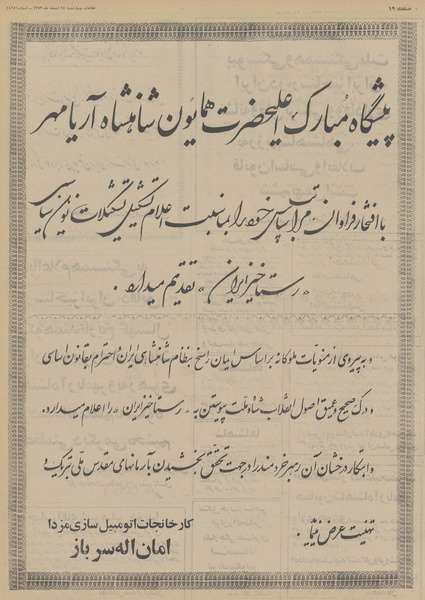 صفحه ۱۹
پیشگاه مبارک اعلیحضرت همایون شاهنشاه آریامهر
با افتخار فراوان مراتب سپاس خود را بمناسبت اعلام تشکیل تشکیلات نوین سیاسی
«رستاخیز ایران» تقدیم میدارد.
و به پیروی از منویات ملوکانه بر اساس ایمان راسخ بنظام شاهنشاهی ایران و احترام بقانون اساسی
و درک صحیح و عمیق اصول انقلاب شاه و ملت پیوستن به «رستاخیز ایران» را اعلام میدارد.
و ابتکار درخشان آن رهبر خردمند را در جهت تحقق بخشیدن بآرمانهای مقدس ملی تبریک و
تهنیت عرض مینماید.
کارخانجات اتومبیل سازی مزدا
امان اله سرباز